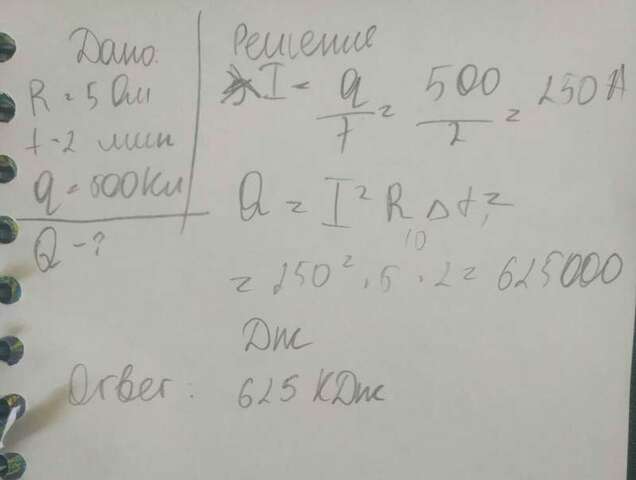 Дано:
R = 5 Ом
t - 2 мин
q = 500 Кл
Q - ?
Решение
I = q/t = 500/2 = 250 А
Q = I² R Δt =
10
= 250² · 5 · 2 = 625000
Дж
Ответ: 625 КДж